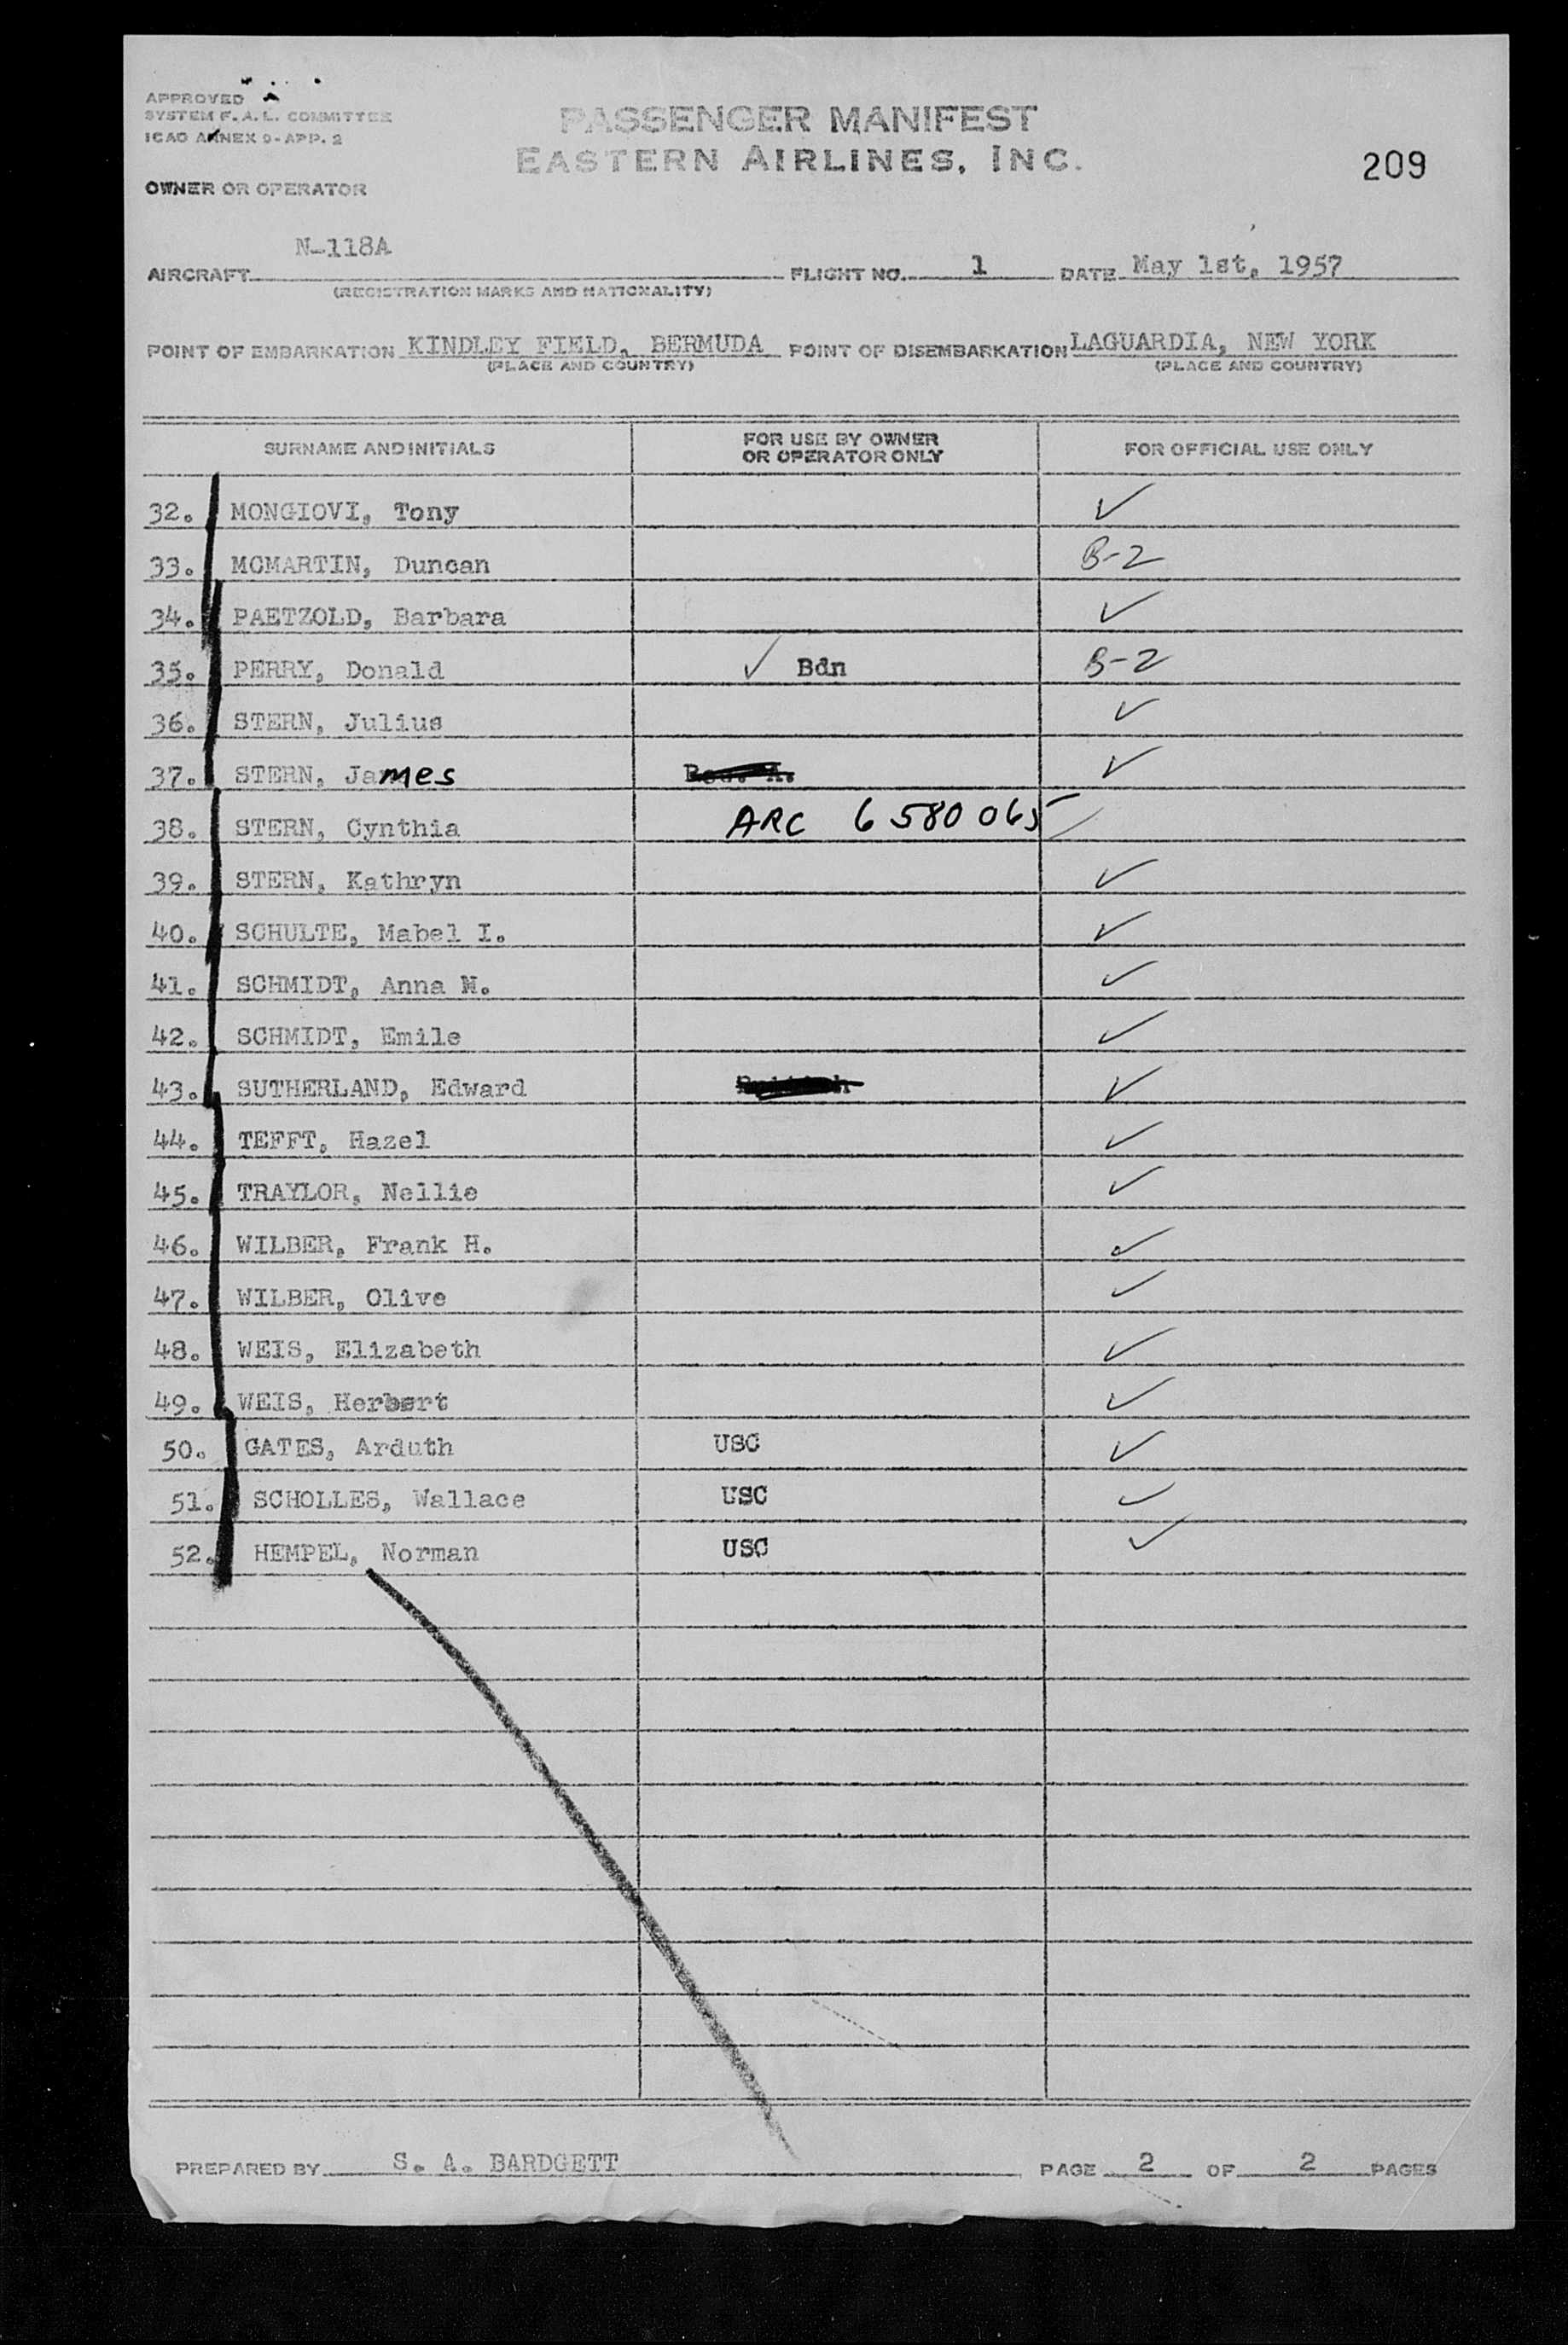 APPROVED
SYSTEM F. A. L. COMMITTEE
ICAO ANNEX 9-APP. 2
PASSENGER MANIFEST
EASTERN AIRLINES, INC.
209
OWNER OR OPERATOR
N-118A
AIRCRAFT FLIGHT NO. 1 DATE May 1st, 1957
(REGISTRATION MARKS AND NATIONALITY)
POINT OF EMBARKATION KINDLEY FIELD, BERMUDA POINT OF DISEMBARKATION LAGUARDIA, NEW YORK
(PLACE AND COUNTRY) (PLACE AND COUNTRY)
SURNAME AND INITIALS FOR USE BY OWNER OR OPERATOR ONLY FOR OFFICIAL USE ONLY
32. MONGIOVI, Tony ✓
33. MCMARTIN, Duncan B-2
34. PAETZOLD, Barbara ✓
35. PERRY, Donald ✓ Bdn B-2
36. STERN, Julius ✓
37. STERN, James ✓
38. STERN, Cynthia ARC 6580065 ✓
39. STERN, Kathryn ✓
40. SCHULTE, Mabel I. ✓
41. SCHMIDT, Anna M. ✓
42. SCHMIDT, Emile ✓
43. SUTHERLAND, Edward ✓
44. TEFFT, Hazel ✓
45. TRAYLOR, Nellie ✓
46. WILBER, Frank H. ✓
47. WILBER, Olive ✓
48. WEIS, Elizabeth ✓
49. WEIS, Herbert ✓
50. GATES, Arduth USC ✓
51. SCHOLLES, Wallace USC ✓
52. HEMPEL, Norman USC ✓
PREPARED BY S. A. BARDGETT PAGE 2 OF 2 PAGES